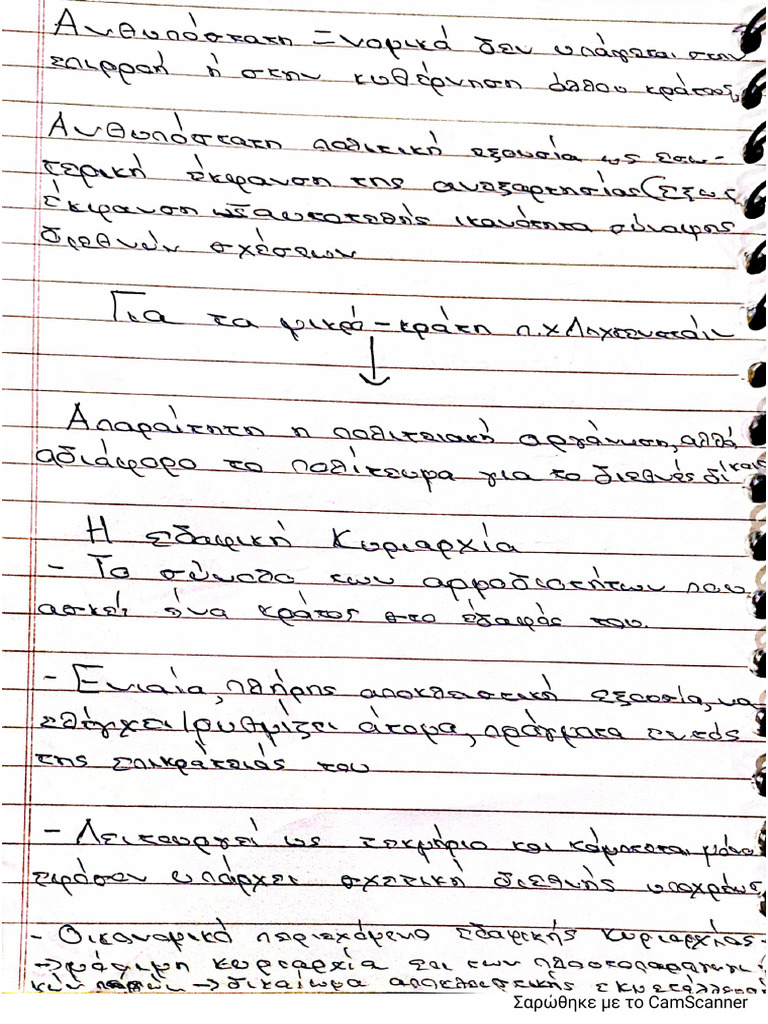 Ανθυπόστατη = Νομικά δεν υπάγεται στην
επιρροή ή στην κυβέρνηση άλλου κράτους
Ανθυπόστατη πολιτική εξουσία ως εσω-
τερική έκφανση της ανεξαρτησίας (έξως
έκφανση ως αυτοτελής ικανότητα σύναψης
διεθνών σχέσεων
Για τα μικρά - κράτη π.χ Λιχτενστάιν
↓
Απαραίτητη η πολιτειακή οργάνωση, αλλά
αδιάφορο το πολίτευμα για το διεθνές δίκαιο
Η εδαφική Κυριαρχία
- Το σύνολο των αρμοδιοτήτων που
ασκεί ένα κράτος στο έδαφός του.
- Ενιαία, πλήρης αποκλειστική εξουσία, να
ελέγχει/ρυθμίζει άτομα, πράγματα εντός
της επικράτειάς του
- Λειτουργεί ως τεκμήριο και κάμπτεται μόνο
εφόσον υπάρχει σχετική διεθνής υποχρέωσ
- Οικονομικό περιεχόμενο εδαφικής κυριαρχίας
→ μόνιμη κυριαρχία επι των πλουτοπαραγωγι
κών πόρων → δικαίωμα αποκλειστικής εκμετάλλευσ
Σαρώθηκε με το CamScanner